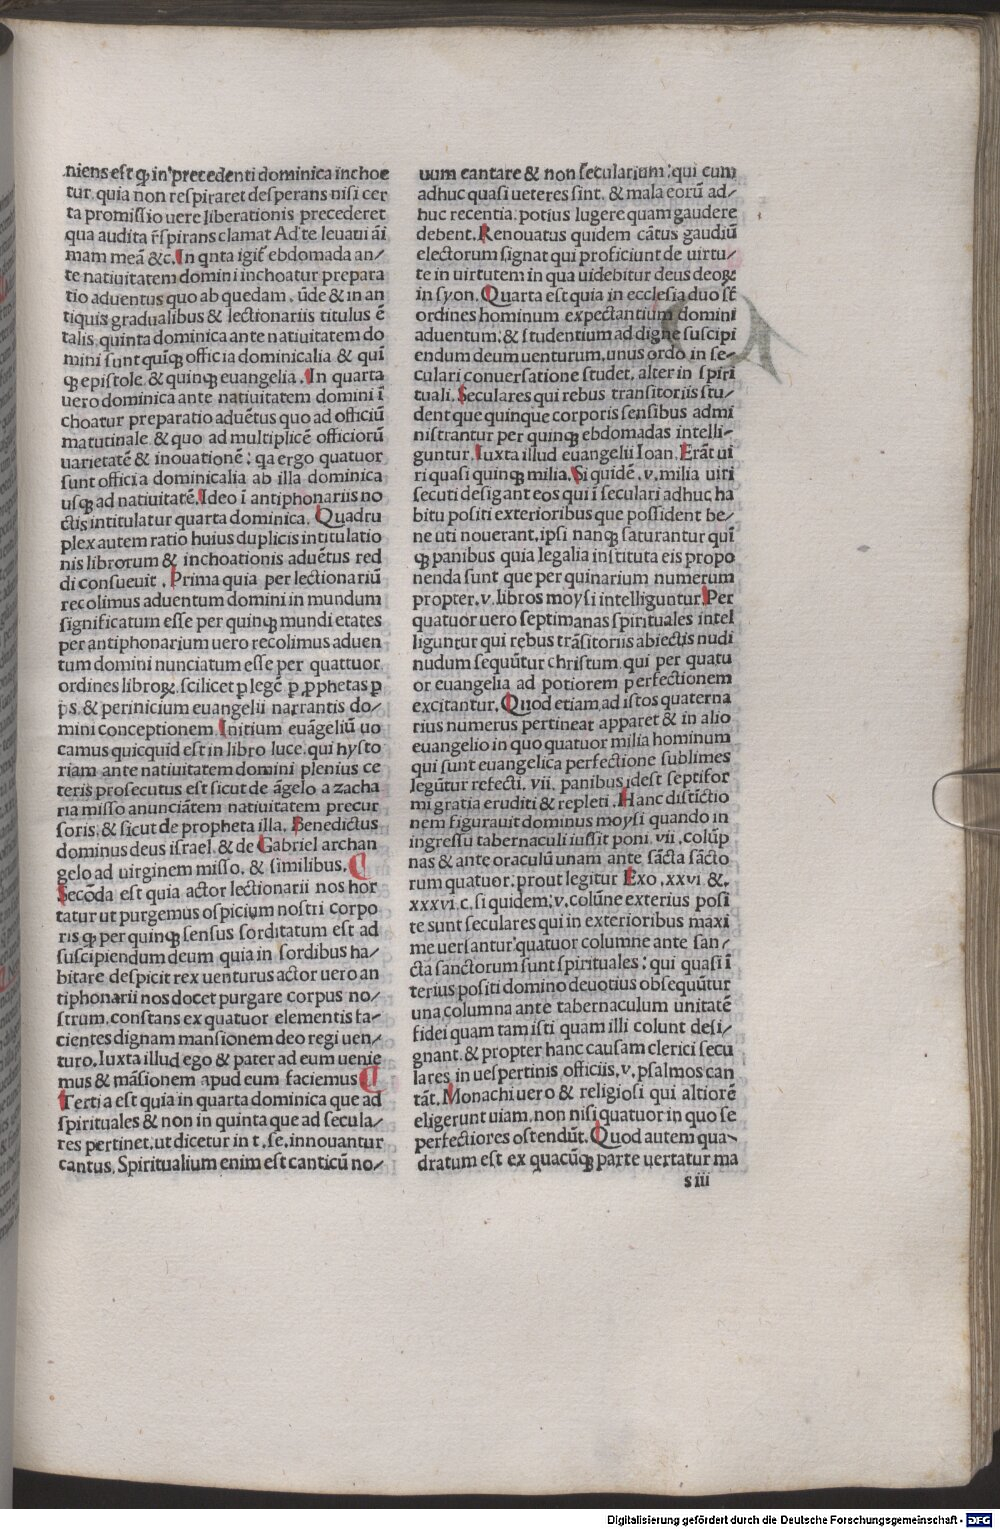 niens est ꝙ in precedenti dominica inchoe
tur quia non respiraret desperans nisi cer
ta promissio uere liberationis precederet
qua audita r̃spirans clamat Ad te leuaui ãi
mam meã &c. In qnta igit̃ ebdomada an/
te natiuitatem domini inchoatur prepara
tio aduentus quo ab quedam. ũde & in an
tiquis gradualibus & lectionariis titulus ẽ
talis. quinta dominica ante natiuitatem do
mini sunt quiꝗ officia dominicalia & qui
ꝗ epistole. & quinꝗ euangelia. In quarta
uero dominica ante natiuitatem domini ĩ
choatur preparatio aduẽtus quo ad officiũ
matutinale. & quo ad multiplicẽ officiorũ
uarietatẽ & inouationẽ: qa ergo quatuor
sunt officia dominicalia ab illa dominica
usꝗ ad natiuitatẽ. Ideo ĩ antiphonariis no
ctis intitulatur quarta dominica. Quadru
plex autem ratio huius duplicis intitulatio
nis librorum & inchoationis aduẽtus red
di consueuit. Prima quia per lectionariũ
recolimus aduentum domini in mundum
significatum esse per quinꝗ mundi etates
per antiphonarium uero recolimus aduen
tum domini nunciatum esse per quattuor
ordines libroꝝ. scilicet p legẽ p pphetas p
ps. & per inicium euangelii narrantis do/
mini conceptionem. Initium euãgeliũ uo
camus quicquid est in libro luce. qui hysto
riam ante natiuitatem domini plenius ce
teris prosecutus est sicut de ãgelo a zacha
ria misso anunciãtem natiuitatem precur
soris. & sicut de propheta illa. Benedictus
dominus deus israel. & de Gabriel archan
gelo ad uirginem misso. & similibus. ¶
Secõda est quia actor lectionarii nos hor
tatur ut purgemus ospicium nostri corpo
ris ꝙ per quinꝗ sensus sorditatum est ad
suscipiendum deum quia in sordibus ha/
bitare despicit rex uenturus actor uero an
tiphonarii nos docet purgare corpus no/
strum. constans ex quatuor elementis fa/
cientes dignam mansionem deo regi uen/
turo. Iuxta illud ego & pater ad eum uenie
mus & mãsionem apud eum faciemus ¶
Tertia est quia in quarta dominica que ad
spirituales & non in quinta que ad secula/
res pertinet. ut dicetur in t. se. innouantur
cantus. Spiritualium enim est canticũ no/
uum cantare & non secularium: qui cum
adhuc quasi ueteres sint. & mala eorũ ad/
huc recentia. potius lugere quam gaudere
debent. Renouatus quidem cãtus gaudiũ
electorum signat qui proficiunt de uirtu/
te in uirtutem in qua uidebitur deus deoꝝ
in syon. Quarta est quia in ecclesia duo st̃
ordines hominum expectantium domini
aduentum. & studentium ad digne suscipi
endum deum uenturum. unus ordo in se/
culari conuersatione studet. alter in spiri
tuali. Seculares qui rebus transitoriis stu/
dent que quinque corporis sensibus admi
nistrantur per quinꝗ ebdomadas intelli/
guntur. Iuxta illud euangelii Ioan. Erãt ui
ri quasi quinꝗ milia. Si quidẽ .v. milia uiri
secuti desigant eos qui ĩ seculari adhuc ha
bitu positi exterioribus que possident be/
ne uti nouerant. ipsi nanꝗ saturantur quĩ
ꝗ panibus quia legalia instituta eis propo
nenda sunt que per quinarium numerum
propter .v. libros moysi intelliguntur. Per
quatuor uero septimanas spirituales intel
liguntur qui rebus trãsitoriis abiectis nudi
nudum sequũtur christum. qui per quatu
or euangelia ad potiorem perfectionem
excitantur. Quod etiam ad istos quaterna
rius numerus pertineat apparet & in alio
euangelio in quo quatuor milia hominum
qui sunt euangelica perfectione sublimes
legũtur refecti. vii. panibus idest septifor
mi gratia eruditi & repleti. Hanc distĩctio
nem figurauit dominus moysi quando in
ingressu tabernaculi iussit poni. vii. colũp
nas & ante oraculũ unam ante sãcta sãcto
rum quatuor. prout legitur Exo. xxvi. &.
xxxvi. c. si quidem. v. colũne exterius posi
te sunt seculares qui in exterioribus maxi
me uersantur. quatuor columne ante san/
cta sanctorum sunt spirituales: qui quasi ĩ
terius positi domino deuotius obsequũtur
una columna ante tabernaculum unitatẽ
fidei quam tam isti quam illi colunt desi/
gnant. & propter hanc causam clerici secu
lares in uespertinis officiis. v. psalmos can
tãt. Monachi uero & religiosi qui altiorẽ
eligerunt uiam. non nisi quatuor in quo se
perfectiores ostendũt. Quod autem qua/
dratum est ex quacũꝗ parte uertatur ma
s iii
Digitalisierung gefördert durch die Deutsche Forschungsgemeinschaft - DFG